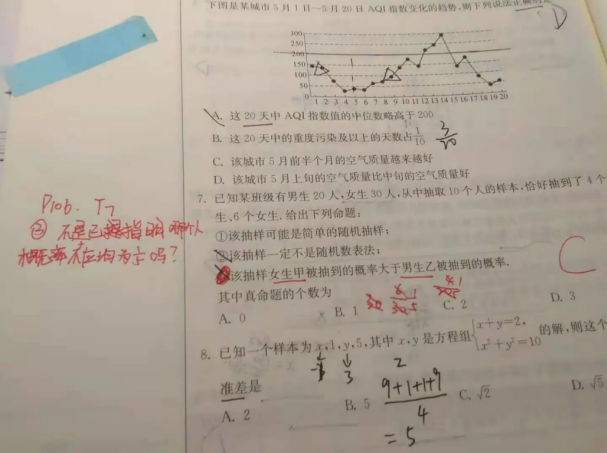 下图是某城市5月1日—5月20日AQI指数变化的趋势,则下列说法正确的是
D
300
250
200
150
100
50
0
1 2 3 4 5 6 7 8 9 10 11 12 13 14 15 16 17 18 19 20
A. 这20天中AQI指数值的中位数略高于200
B. 这20天中的重度污染及以上的天数占1/10 3/20
C. 该城市5月前半个月的空气质量越来越好
D. 该城市5月上旬的空气质量比中旬的空气质量好
7. 已知某班级有男生20人,女生30人,从中抽取10个人的样本,恰好抽到了4个
生、6个女生. 给出下列命题:
①该抽样可能是简单的随机抽样;
②该抽样一定不是随机数表法;
该抽样女生甲被抽到的概率大于男生乙被抽到的概率.
其中真命题的个数为
A. 0
B. 1
C. 2
D. 3
C
P106. T7
③ 不是已
吗?
8. 已知一个样本为x,1,y,5,其中x,y是方程组{x+y=2, x²+y²=10的解,则这个
准差是
-1 3 2
A. 2
B. 5
C. √2
D. √5
9+1+1+9
4
=5